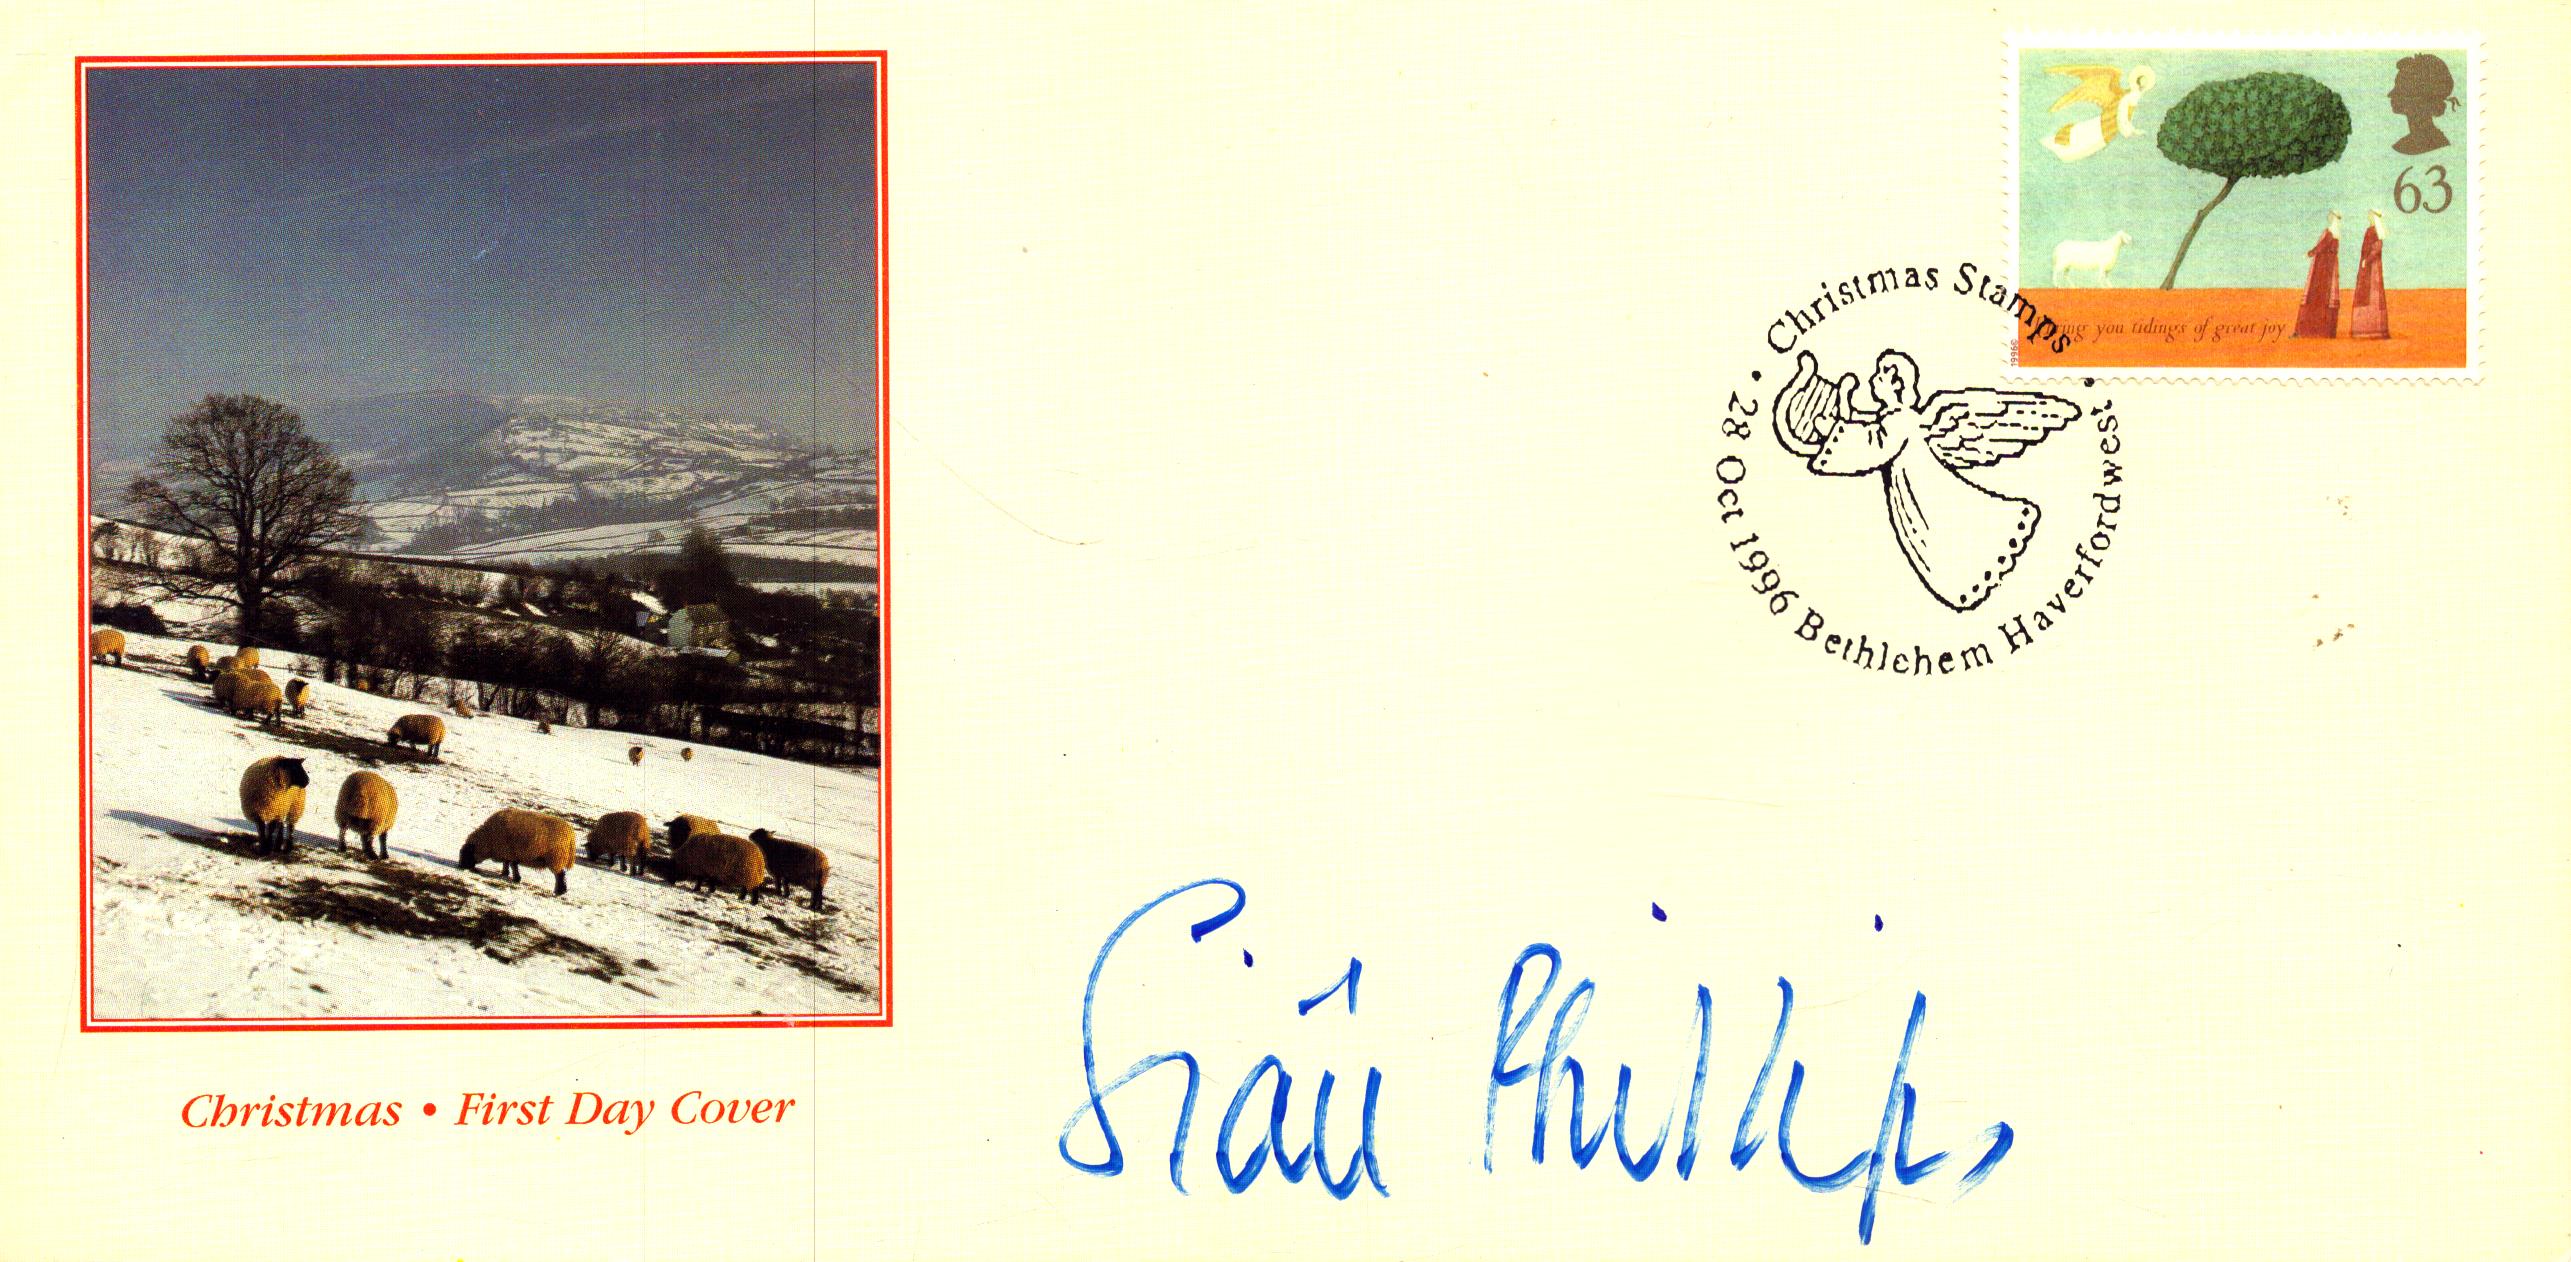 63
1996©
bring you tidings of great joy
Christmas Stamps
• 28 Oct 1996 Bethlehem Haverfordwest •
Christmas • First Day Cover
Siân Phillips